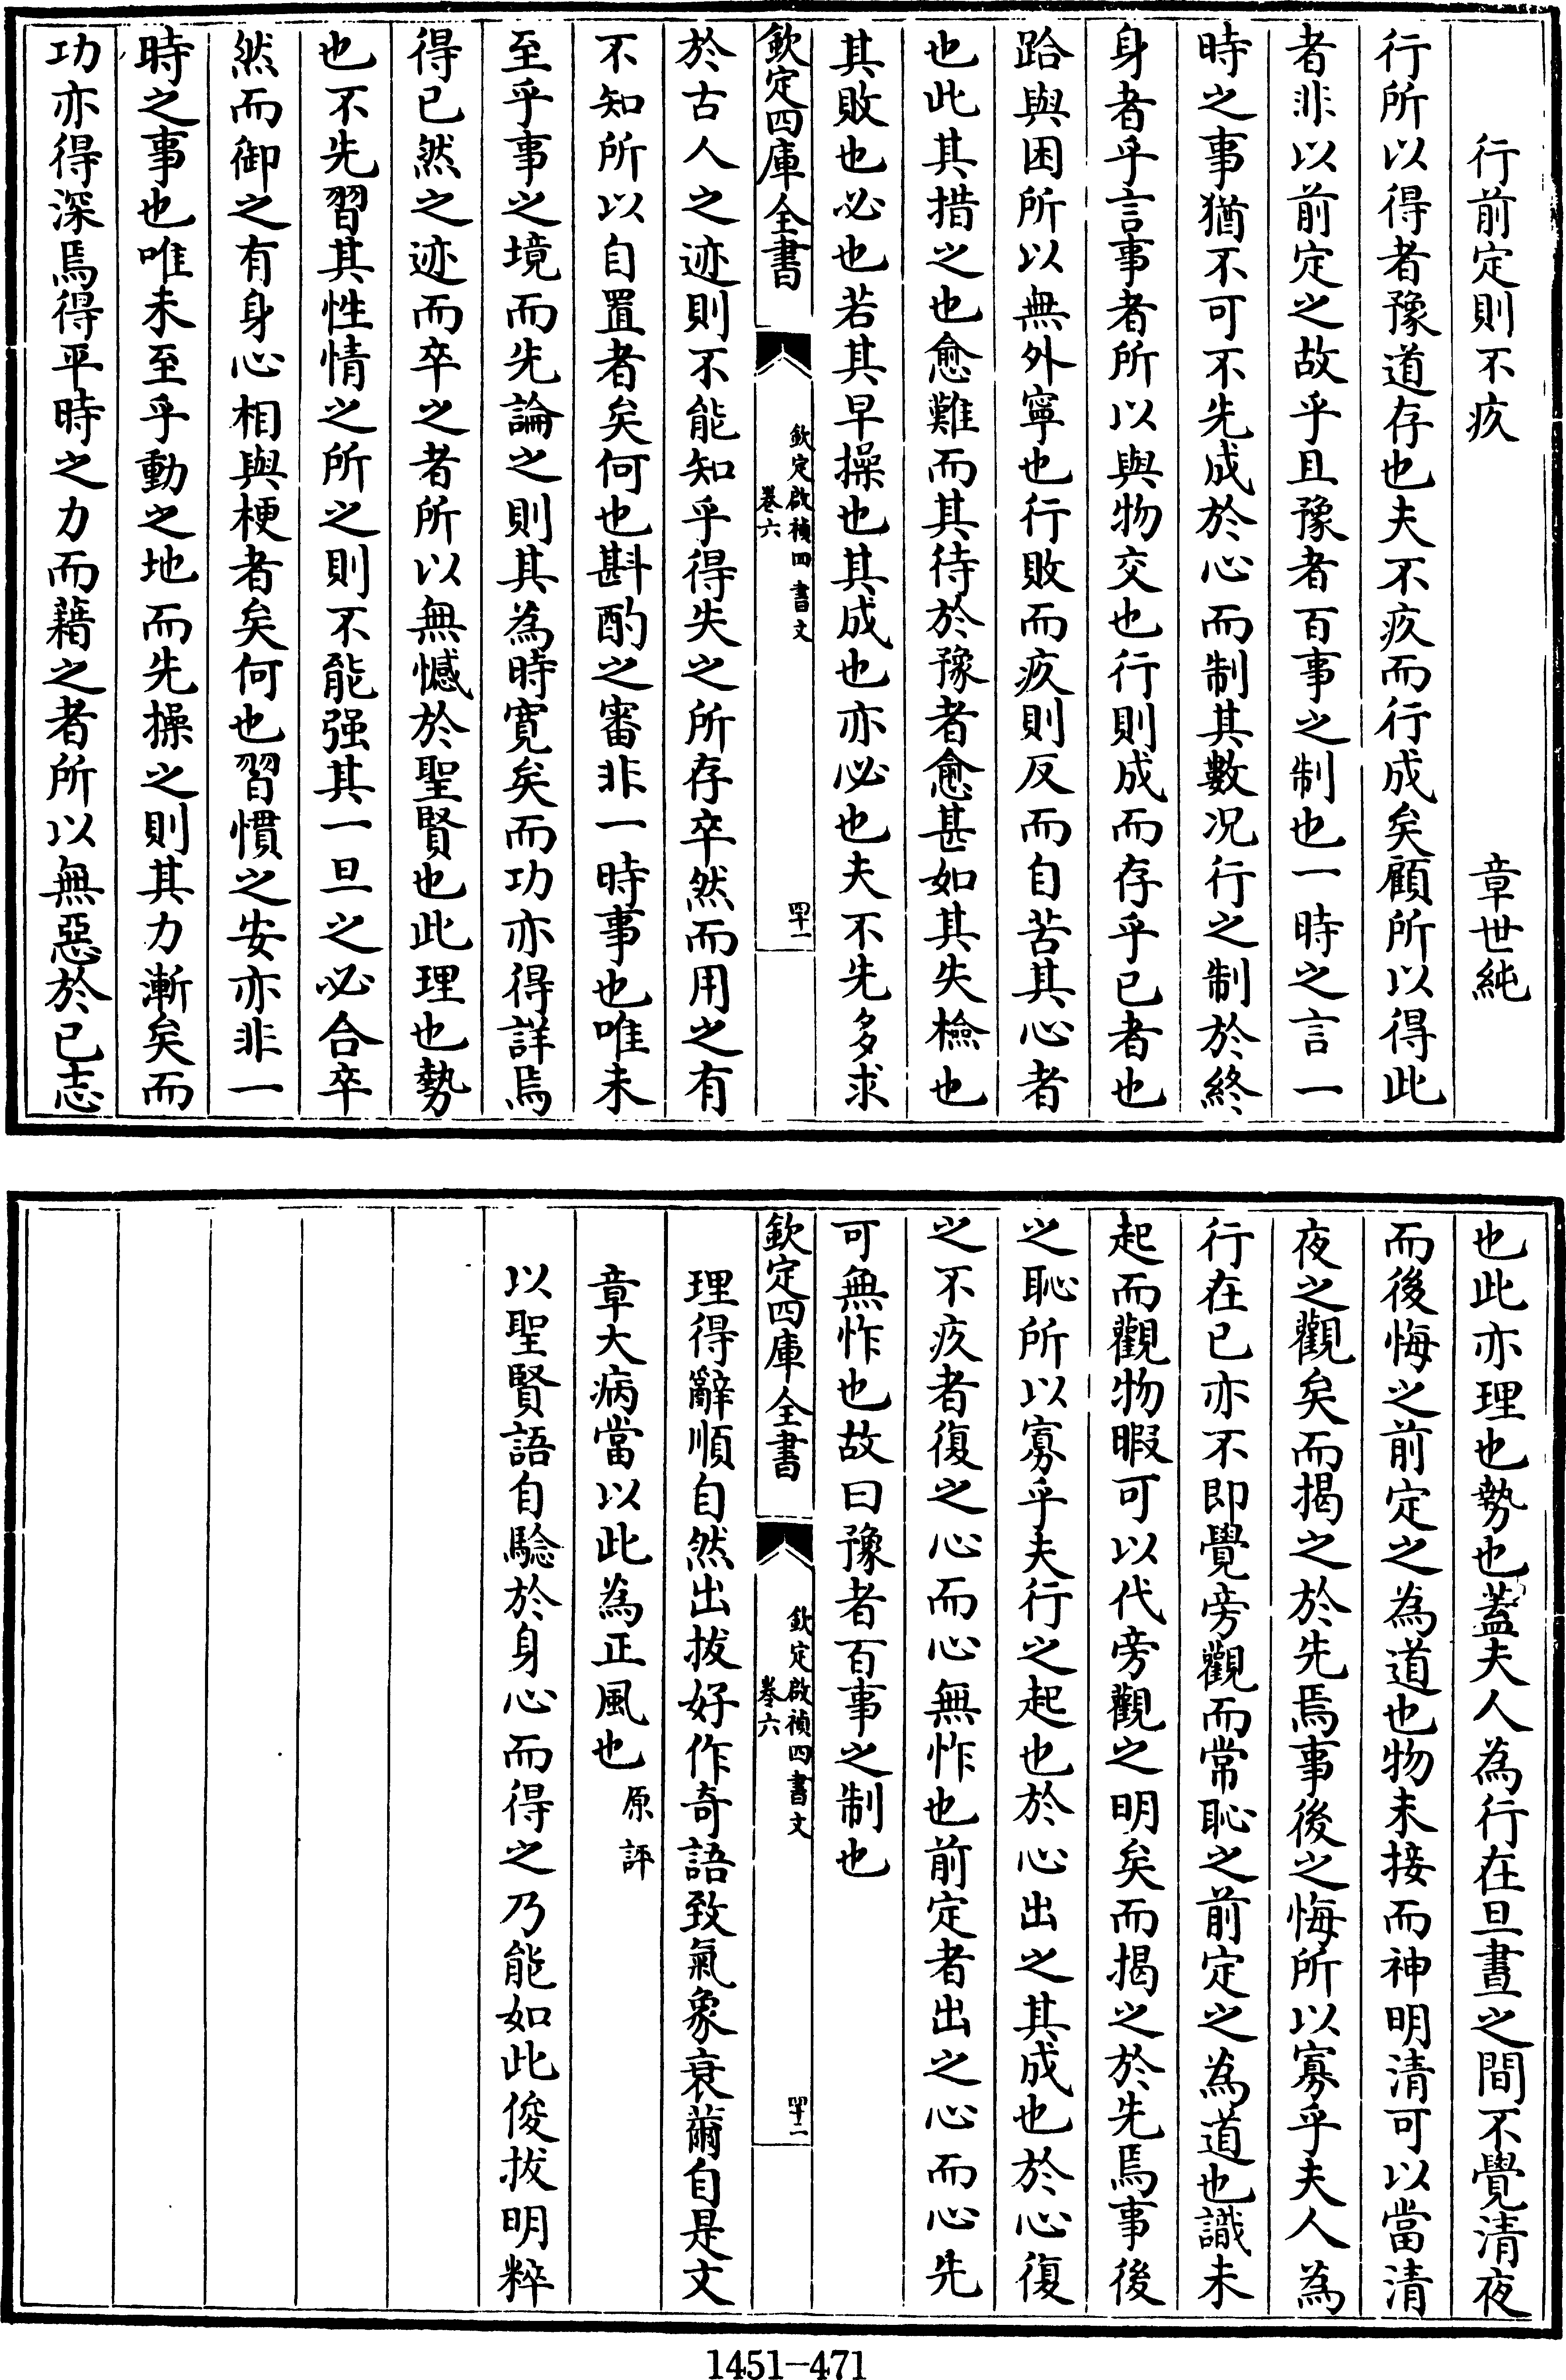 行前定則不疚　章世純
行所以得者豫道存也夫不疚而行成矣顧所以得此
者非以前定之故乎且豫者百事之制也一時之言一
時之事猶不可不先成於心而制其數况行之制於終
身者乎言事者所以與物交也行則成而存乎已者也
跲與困所以無外寧也行敗而疚則反而自苦其心者
也此其措之也愈難而其待於豫者愈甚如其失檢也
其敗也必也若其早操也其成也亦必也夫不先多求
欽定四庫全書
欽定啟禎四書文
卷六
四十一
於古人之迹則不能知乎得失之所存卒然而用之有
不知所以自置者矣何也斟酌之審非一時事也唯未
至乎事之境而先論之則其為時寛矣而功亦得詳焉
得已然之迹而卒之者所以無憾於聖賢也此理也勢
也不先習其性情之所之則不能强其一旦之必合卒
然而御之有身心相與梗者矣何也習慣之安亦非一
時之事也唯未至乎動之地而先操之則其力漸矣而
功亦得深焉得平時之力而藉之者所以無惡於已志
也此亦理也勢也蓋夫人為行在旦晝之間不覺清夜
而後悔之前定之為道也物未接而神明清可以當清
夜之觀矣而揭之於先焉事後之悔所以寡乎夫人為
行在已亦不即覺旁觀而常恥之前定之為道也識未
起而觀物暇可以代旁觀之明矣而揭之於先焉事後
之恥所以寡乎夫行之起也於心出之其成也於心復
之不疚者復之心而心無怍也前定者出之心而心先
可無怍也故曰豫者百事之制也
欽定四庫全書
欽定啟禎四書文
卷六
四十二
理得辭順自然出拔好作奇語致氣象衰薾自是文
章大病當以此為正風也原評
以聖賢語自驗於身心而得之乃能如此俊拔明粹
1451-471